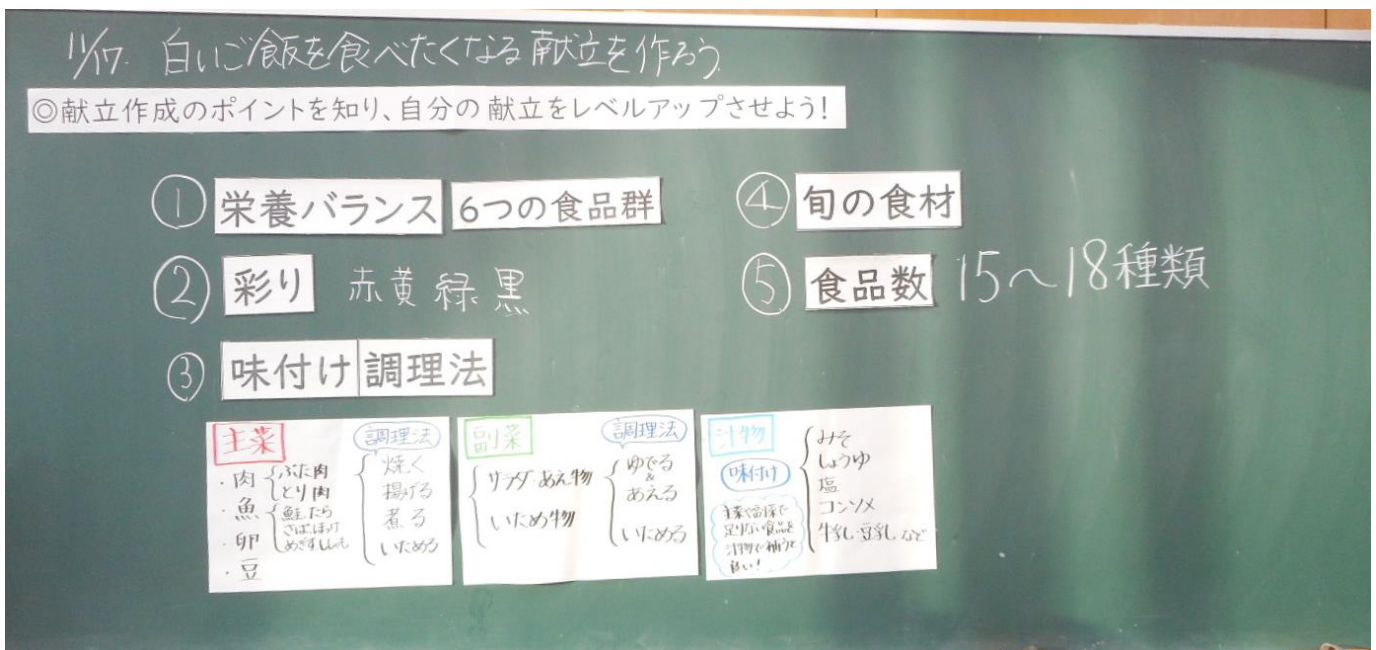 11/17. 白いご飯を食べたくなる献立を作ろう
◎献立作成のポイントを知り、自分の献立をレベルアップさせよう!
① 栄養バランス 6つの食品群
② 彩り 赤黄緑黒
③ 味付け 調理法
④ 旬の食材
⑤ 食品数 15〜18種類
主菜
・肉 ぶた肉
とり肉
・魚 鮭、たら
さば、ほっけ
めぎす、ししゃも
・卵
・豆
調理法
焼く
揚げる
煮る
いためる
副菜
サラダ・あえ物
いため物
調理法
ゆでる
&
あえる
いためる
汁物
味付け
主菜や副菜で
足りない食品を
汁物で補うと
良い!
みそ
しょうゆ
塩
コンソメ
牛乳・豆乳 など